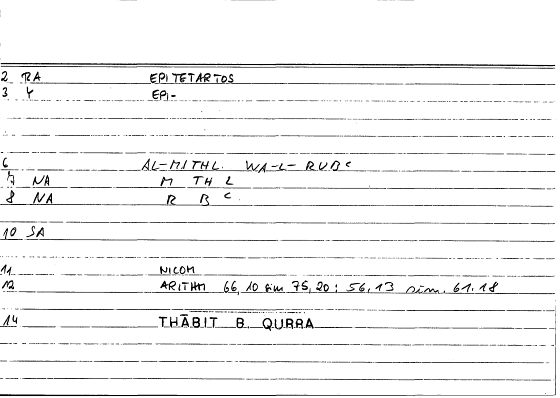 2 RA EPITETARTOS
3 Y EPI-
6 AL-MITHL WA-L-RUBC
7 NA M TH L
8 NA R B C
10 SA
11 NICOM
12 ARITHM 66,10 sim 75,20; 56,13 sim. 61.18
14 THĀBIT B. QURRA